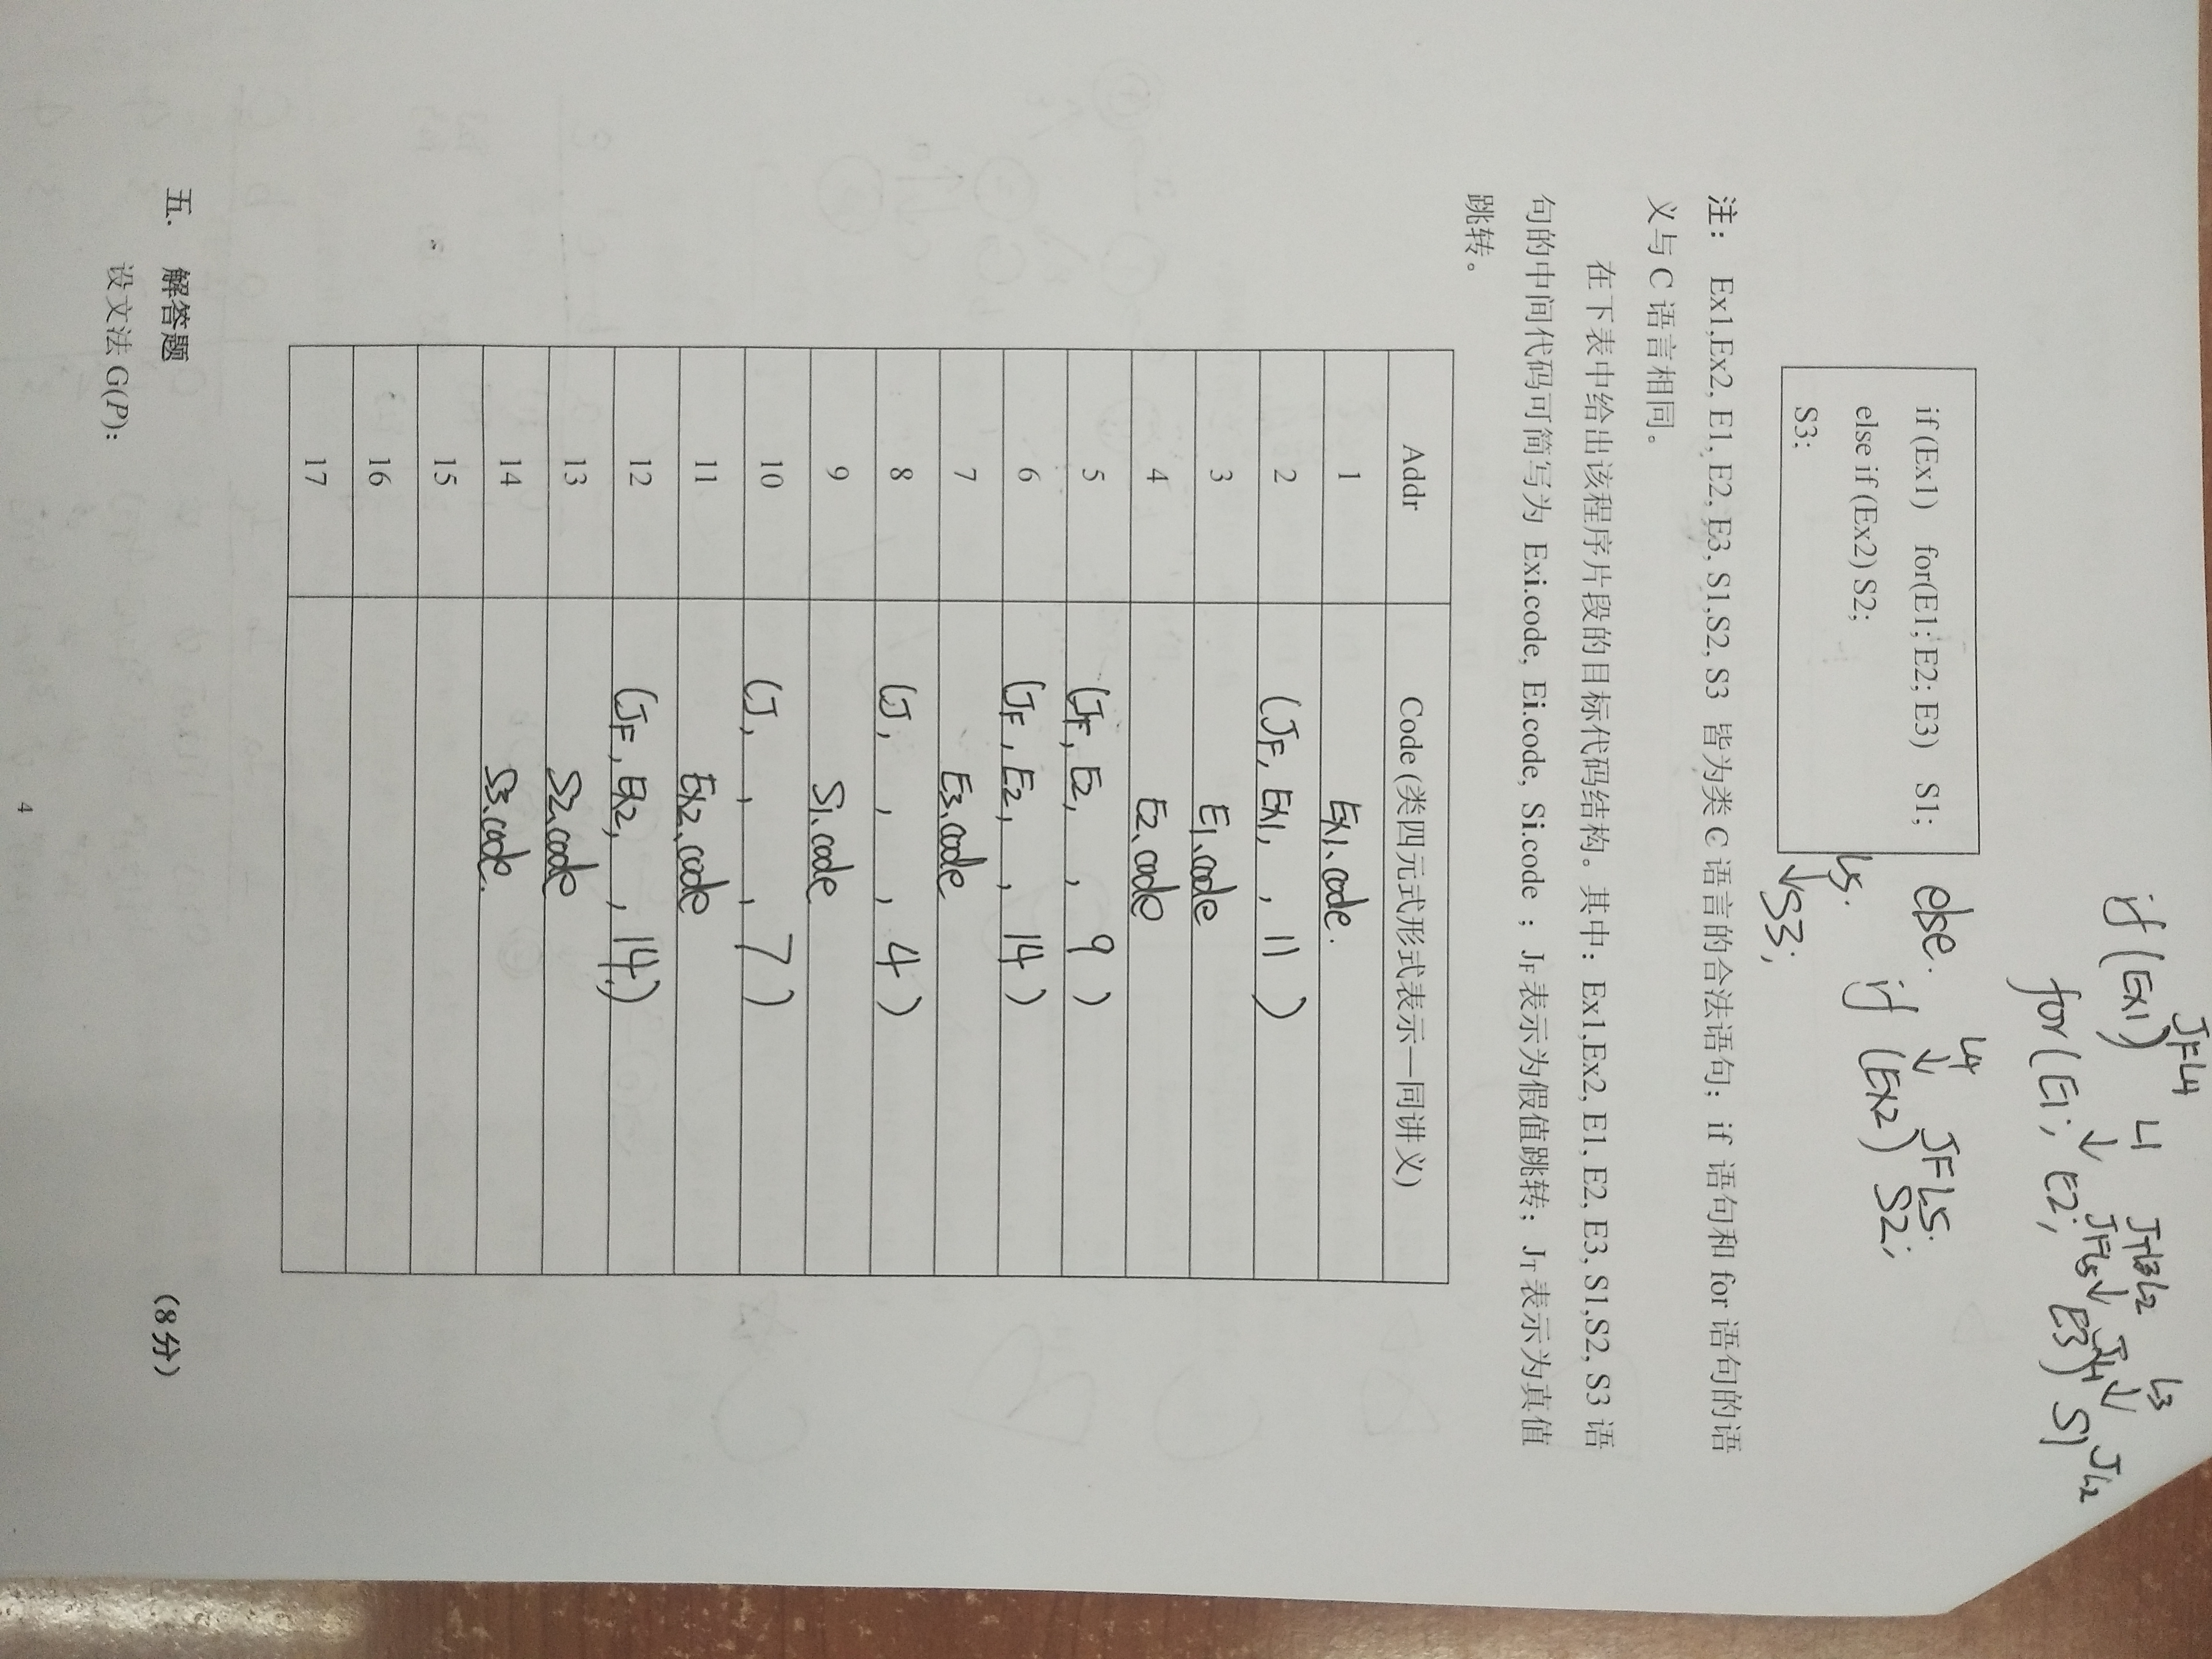 if (EX1) JFL4
for (E1; L1↓ E2; JTL3 JFL5 L2↓ E3) JL1 L3↓ S1 JL2
else.
if L4↓ (EX2) JFL5. S2;
L5.
↓S3;
if (Ex1) for(E1; E2; E3) S1;
else if (Ex2) S2;
S3;
注： Ex1,Ex2, E1, E2, E3, S1,S2, S3 皆为类 C 语言的合法语句；if 语句和 for 语句的语
义与 C 语言相同。
在下表中给出该程序片段的目标代码结构。其中：Ex1,Ex2, E1, E2, E3, S1,S2, S3 语
句的中间代码可简写为 Exi.code, Ei.code, Si.code ；JF 表示为假值跳转；JT 表示为真值
跳转。
Addr Code (类四元式形式表示—同讲义)
1 EX1.code.
2 (JF, EX1, , 11 )
3 E1.code
4 E2.code
5 (JF, E2, , 9 )
6 (JF, E2, , 14 )
7 E3.code
8 (J, , , 4 )
9 S1.code
10 (J, , , 7 )
11 EX2.code
12 (JF, EX2, , 14)
13 S2.code
14 S3.code.
15
16
17
五. 解答题 (8 分)
设文法 G(P):
4